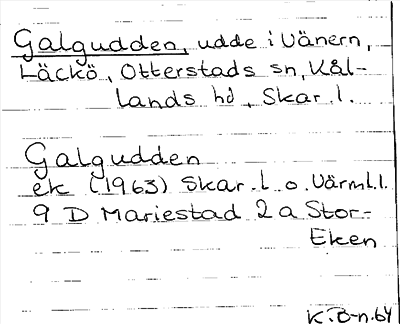 Galgudden, udde i Vänern,
Läckö, Otterstads sn, Kål-
lands hd, Skar.l.
Galgudden
ek (1963) Skar.l. o. Värml.l.
9 D Mariestad 2 a Stor-
Eken
K.B-n.64